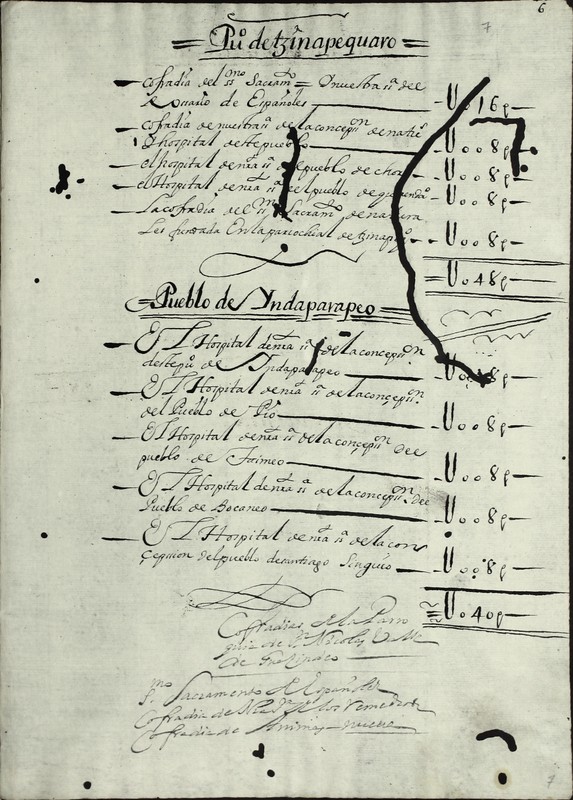 6
7
Puº de tzinapequaro
cofradia del ssmo Sacramto = Y nuestra sa del
Rosario de Españoles — U016p
cofradia de nuestra sa de la concepon de natles
Y hospital deste pueblo — U008p
el hospital de nra sa del pueblo de — U008p
el Hospital de nra sa del pueblo de — U008p
La cofradia del ssmo Sacramto de natura
les fundada En la parrochial de tzinapqro — U008p
U048p
Pueblo de Yndaparapeo
El Hospital de nra sa de la concepon
deste pu de Yndaparapeo — U008p
El Hospital de nra sa de la concepon
del Pueblo de Pio — U008p
El Hospital de nra sa de la concepon del
pueblo de — U008p
El Hospital de nra sa de la concepon del
Pueblo de Bocaneo — U008p
El Hospital de nra sa de la con
cepcion del pueblo de santiago Singuio — U008p
U040p
Cofradias de la Parro
quia de Sn Nicolas
de
Smo Sacramento de Españoles
Cofradia de los
Cofradia de Animas nueva
7